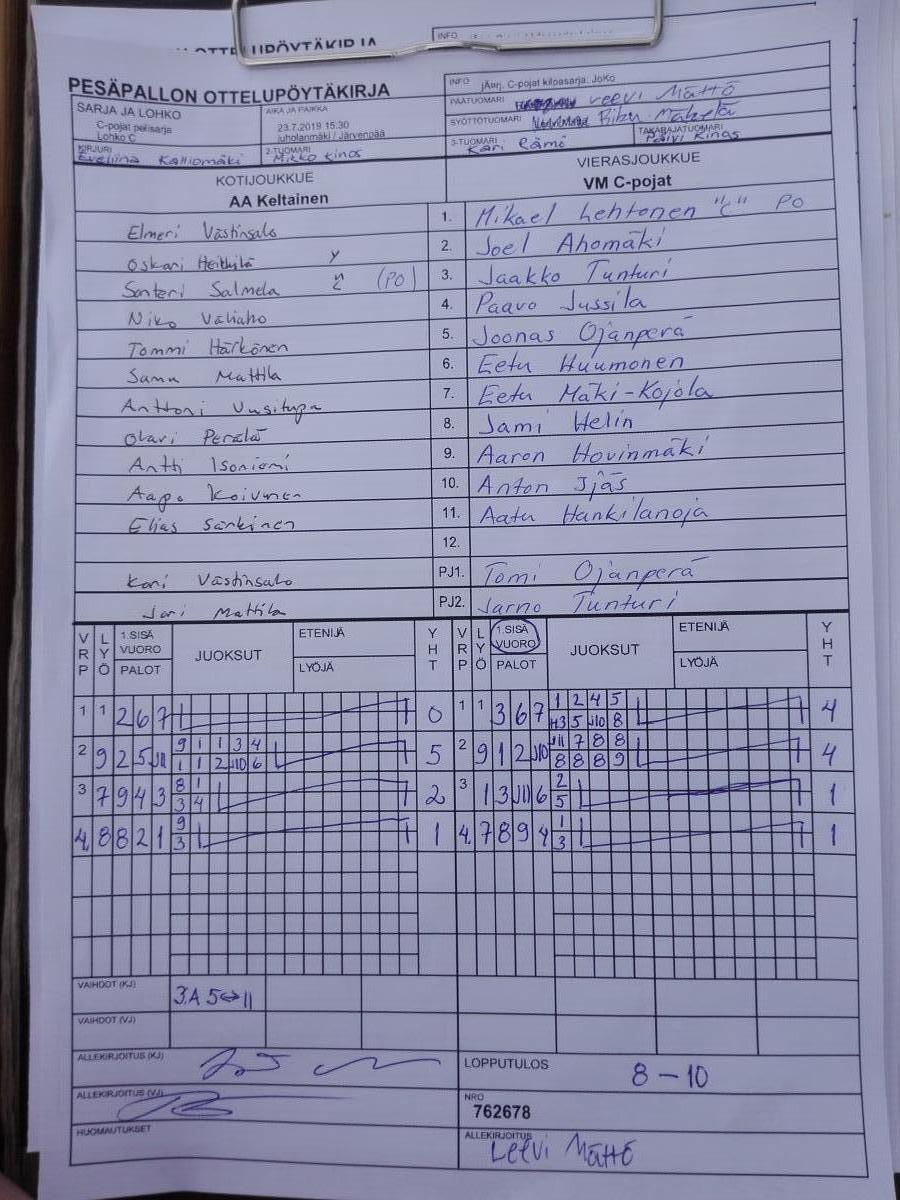 INFO
PESÄPALLON OTTELUPÖYTÄKIRJA
INFO jÄurj. C-pojat kilpasarja: JoKo
SARJA JA LOHKO
C-pojat pelisarja
Lohko C
AIKA JA PAIKKA
23.7.2019 15:30
juholanmäki / Järvenpää
PÄÄTUOMARI Veevi Mättö
SYÖTTÖTUOMARI Riku Mäkelä
KIRJURI
Eveliina Kalliomäki
2-TUOMARI
Mikko Kinos
3-TUOMARI
Kari Rämö
TAKARAJATUOMARI
Päivi Kinos
KOTIJOUKKUE
AA Keltainen
VIERASJOUKKUE
VM C-pojat
Elmeri Västinsalo 1. Mikael Lehtonen "C" PO
Oskari Heikkilä Y 2. Joel Ahomäki
Santeri Salmela (PO) 3. Jaakko Tunturi
Niko Väliaho 4. Paavo Jussila
Tommi Härkönen 5. Joonas Ojanperä
Samu Mattila 6. Eetu Huumonen
Anttoni Uusitupa 7. Eetu Mäki-Kojola
Olavi Perälä 8. Jami Helin
Antti Isoniemi 9. Aaron Hovinmäki
Aapo Koivunen 10. Anton Ijäs
Elias Särkinen 11. Aatu Hankilanoja
12.
Kari Västinsalo PJ1. Tomi Ojanperä
Jari Mattila PJ2. Jarno Tunturi
VRP LYÖ 1.SISÄ VUORO PALOT JUOKSUT ETENIJÄ LYÖJÄ YHT VRP LYÖ 1.SISÄ VUORO PALOT JUOKSUT ETENIJÄ LYÖJÄ YHT
1 1 2 6 7 0 1 1 3 6 7 1 2 4 5 4
H3 5 J10 8
2 9 2 5 J11 9 1 1 3 4 5 2 9 1 2 J10 J11 7 8 8 4
1 1 2 J10 6 8 8 8 9
3 7 9 4 3 8 1 2 3 1 3 J10 6 2 1
3 4 5
4. 8 8 2 1 9 1 4. 7 8 9 4 1 1
3 3
VAIHDOT (KJ) 3.A 5↔11
VAIHDOT (VJ)
ALLEKIRJOITUS (KJ)
LOPPUTULOS 8 – 10
ALLEKIRJOITUS (VJ)
NRO
762678
HUOMAUTUKSET
ALLEKIRJOITUS
Leevi Mättö